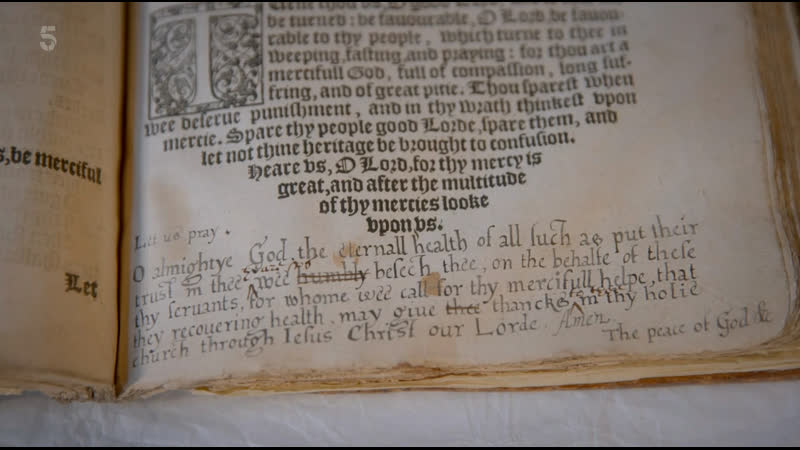 5
Turne thou vs, O good Lord
be turned: be fauourable, O Lord, be fauou-
rable to thy people, which turne to thee in
weeping, fasting, and praying: for thou art a
mercifull God, full of compassion, long suf-
fring, and of great pitie. Thou sparest when
wee deserue punishment, and in thy wrath thinkest vpon
mercie. Spare thy people good Lorde, spare them, and
let not thine heritage be brought to confusion.
Heare vs, O Lord, for thy mercy is
great, and after the multitude
of thy mercies looke
vpon vs.
s, be merciful
Let
Let us pray.
O almightye God, the eternall health of all such as put their
trust in thee, wee humbly besech thee, on the behalfe of these
thy servants, for whome wee call for thy mercifull helpe, that
they recouering health, may giue thee thanckes in thy holie
church through Iesus Christ our Lorde. Amen.
The peace of God &c